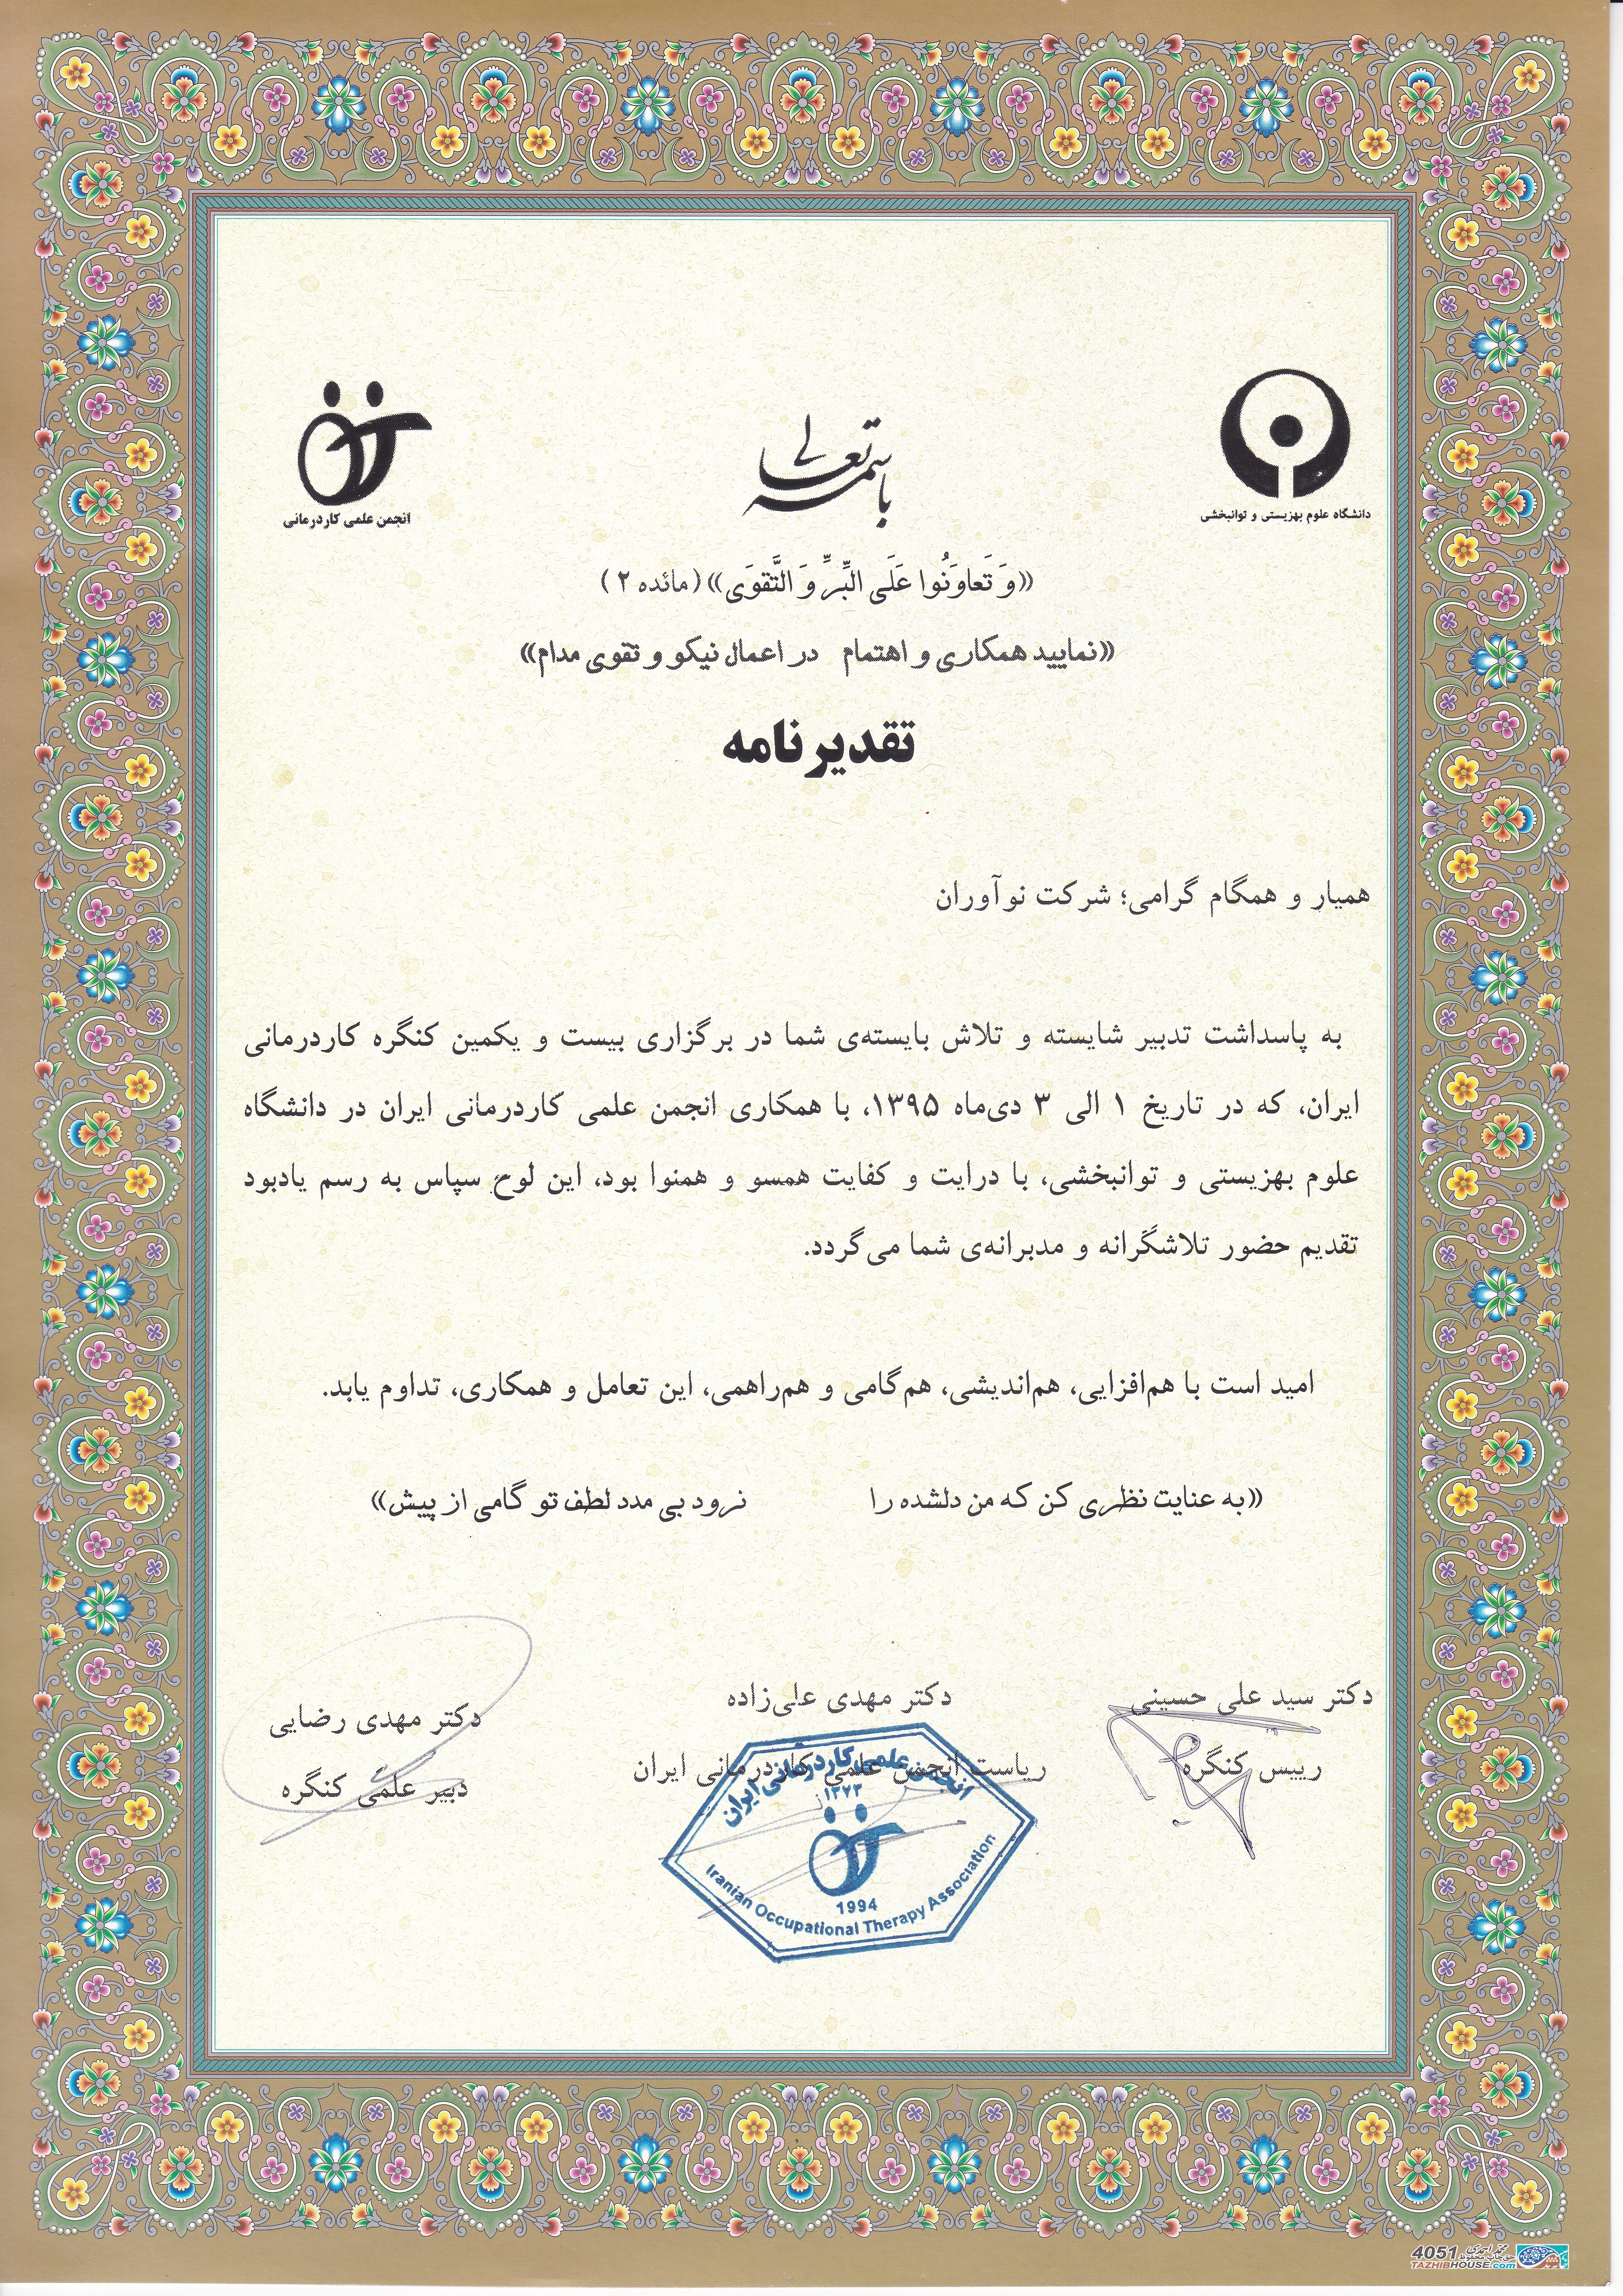 باسمه تعالی
دانشگاه علوم بهزیستی و توانبخشی
انجمن علمی کاردرمانی
«وَ تَعاوَنُوا عَلَی البِّرِّ وَ التَّقوَی» (مائده ۲)
«نمایید همکاری و اهتمام در اعمال نیکو و تقوی مدام»
تقدیرنامه
همیار و همگام گرامی؛ شرکت نوآوران
به پاسداشت تدبیر شایسته و تلاش بایسته‌ی شما در برگزاری بیست و یکمین کنگره کاردرمانی
ایران، که در تاریخ ۱ الی ۳ دی‌ماه ۱۳۹۵، با همکاری انجمن علمی کاردرمانی ایران در دانشگاه
علوم بهزیستی و توانبخشی، با درایت و کفایت همسو و همنوا بود، این لوح سپاس به رسم یادبود
تقدیم حضور تلاشگرانه و مدبرانه‌ی شما می‌گردد.
امید است با هم‌افزایی، هم‌اندیشی، هم‌گامی و هم‌راهمی، این تعامل و همکاری، تداوم یابد.
«به عنایت نظری کن که من دلشده را نرود بی مدد لطف تو گامی از پیش»
دکتر سید علی حسینی
رییس کنگره
دکتر مهدی علی‌زاده
ریاست انجمن علمی کاردرمانی ایران
دکتر مهدی رضایی
دبیر علمی کنگره
انجمن علمی کاردرمانی ایران
۱۳۷۳
1994
Iranian Occupational Therapy Association
4051
TAZHIBHOUSE.com